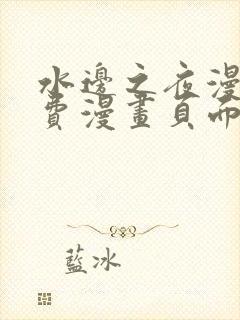 水邊之夜漫
費漫畫頁面
藍冰